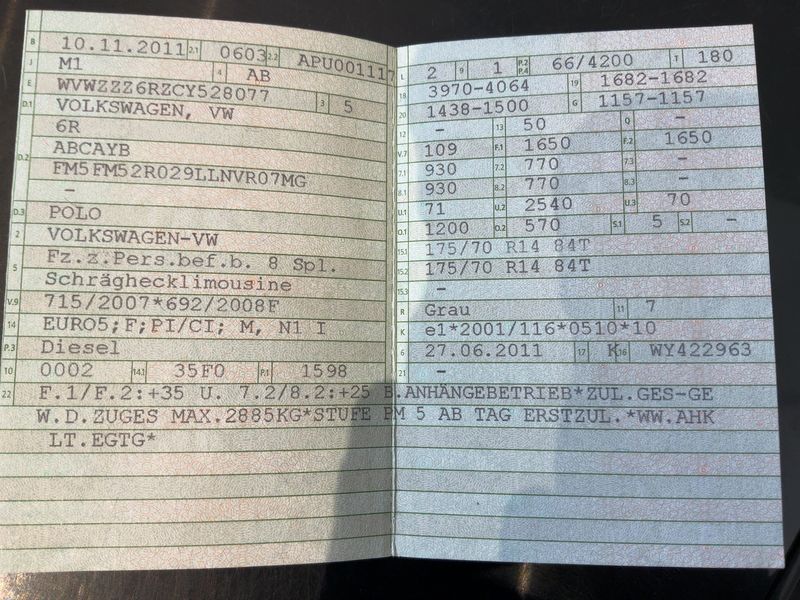 B 10.11.2011 2.1 0603 2.2 APU001117
J M1 4 AB
E WVWZZZ6RZCY528077 3 5
D.1 VOLKSWAGEN, VW
6R
D.2 ABCAYB
FM5FM52R029LLNVR07MG
-
D.3 POLO
2 VOLKSWAGEN-VW
5 Fz.z.Pers.bef.b. 8 Spl.
Schräghecklimousine
V.9 715/2007*692/2008F
14 EURO5;F;PI/CI; M, N1 I
P.3 Diesel
10 0002 14.1 35F0 P.1 1598
L 2 9 1 P.2 P.4 66/4200 T 180
18 3970-4064 19 1682-1682
20 1438-1500 G 1157-1157
12 - 13 50 Q -
V.7 109 F.1 1650 F.2 1650
7.1 930 7.2 770 7.3 -
8.1 930 8.2 770 8.3 -
U.1 71 U.2 2540 U.3 70
O.1 1200 O.2 570 S.1 5 S.2 -
15.1 175/70 R14 84T
15.2 175/70 R14 84T
15.3 -
R Grau 11 7
K e1*2001/116*0510*10
6 27.06.2011 17 K 16 WY422963
21 -
22 F.1/F.2:+35 U. 7.2/8.2:+25 B.ANHÄNGEBETRIEB*ZUL.GES-GE
W.D.ZUGES MAX.2885KG*STUFE PM 5 AB TAG ERSTZUL.*WW.AHK
LT.EGTG*